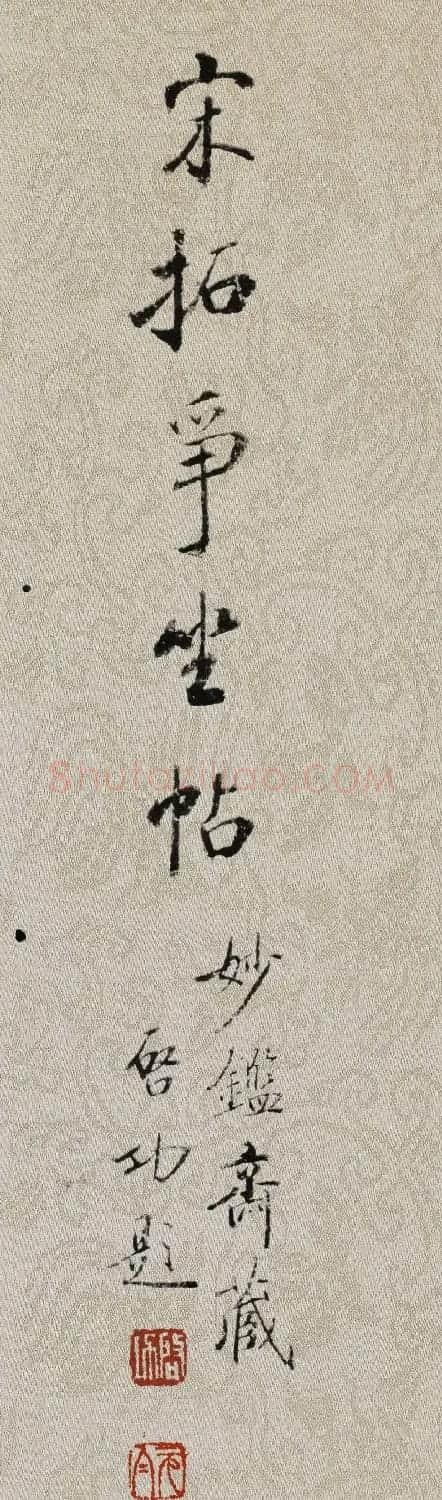 宋拓爭坐帖
妙鑑齋藏
啓功題
啓功
元白
Shutaxiliao.COM